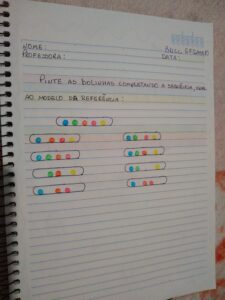 NOME:
PROFESSORA: DATA:
PINTE AS BOLINHAS COMPLETANDO A SEQUÊNCIA,
AO MODELO DE REFERÊNCIA: